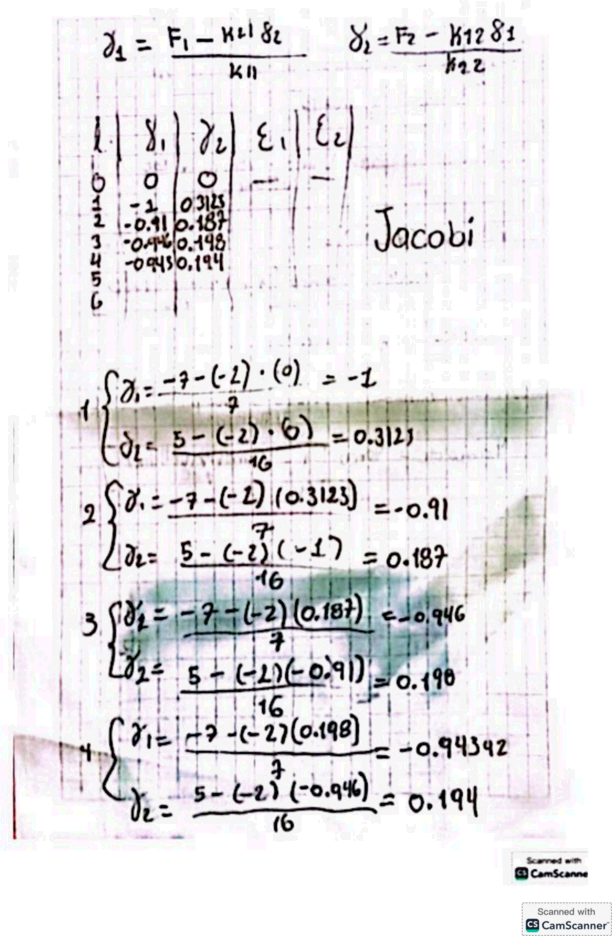 γ₁ = (F₁ - K21 δ₂) / K11    γ₂ = (F₂ - K12 δ1) / K22
i | γ₁ | γ₂ | ε₁ | ε₂
0 | 0 | 0 | — | —
1 | -1 | 0.3123
2 | -0.91 | 0.187
3 | -0.946 | 0.198
4 | -0.943 | 0.194
5
6
Jacobi
1 { γ₁ = (-7-(-2)·(0)) / 7 = -1
γ₂ = (5-(-2)·0) / 16 = 0.3123
2 { γ₁ = (-7-(-2)(0.3123)) / 7 = -0.91
γ₂ = (5-(-2)(-1)) / 16 = 0.187
3 { γ₂ = (-7-(-2)(0.187)) / 7 = -0.946
γ₂ = (5-(-2)(-0.91)) / 16 = 0.198
4 { γ₁ = (-7-(-2)(0.198)) / 7 = -0.94392
γ₂ = (5-(-2)(-0.946)) / 16 = 0.194
Scanned with
CS CamScanne
Scanned with
CS CamScanner